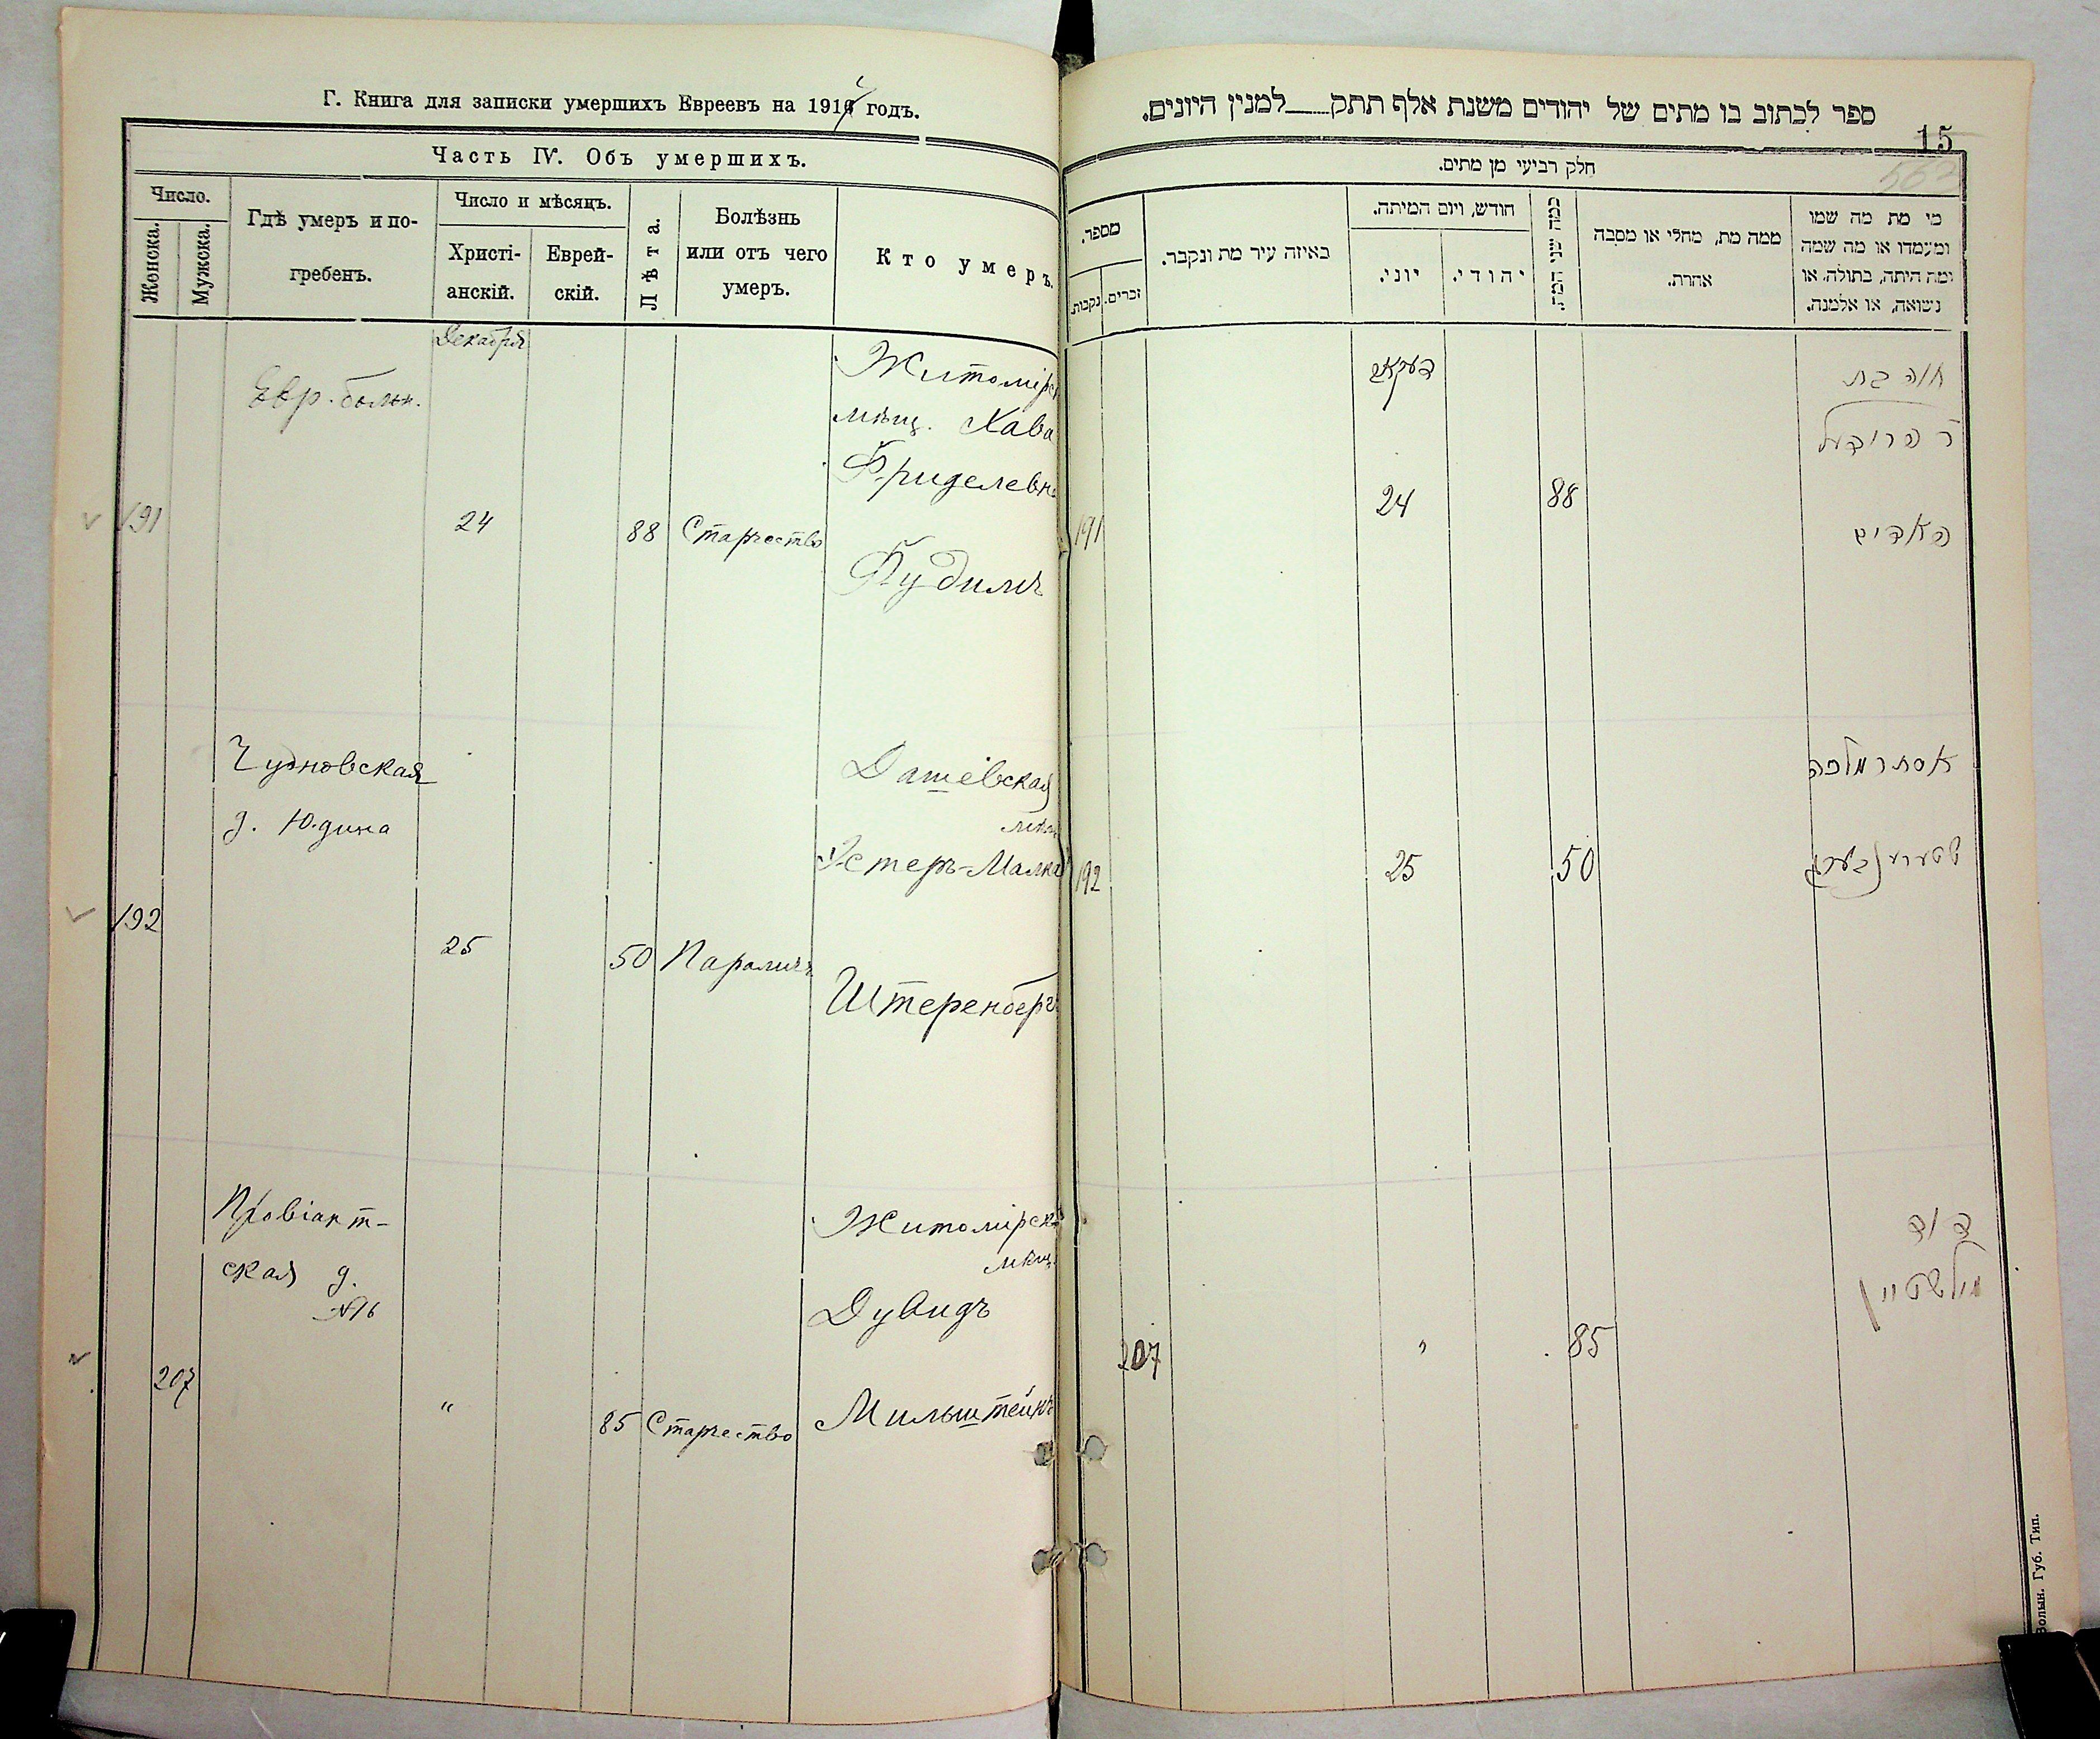 Г. Книга для записки умершихъ Евреевъ на 1914 годъ.
Часть IV. Объ умершихъ.
Число.
Женска.
Мужска.
Гдѣ умеръ и по-
гребенъ.
Число и мѣсяцъ.
Христі-
анскій.
Еврей-
скій.
Лѣта.
Болѣзнь
или отъ чего
умеръ.
Кто умеръ.
Декабря
Евр. больн.
191
24
88
Старчество
Житомірск
мѣщ. Хава
Фриделевна
Фудимъ
Чудновская
д. Юдина
192
25
50
Параличъ
Дашевская
мѣщ
Эстеръ-Малка
Штеренбергъ
Провіант-
ская д.
№16
207
"
85
Старчество
Житомірск
мѣщ.
Дувидъ
Мильштейнъ
ספר לכתוב בו מתים של יהודים משנת אלף תתק למנין היונים.
15
חלק רביעי מן מתים.
מספר.
נקבות.
זכרים.
באיזה עיר מת ונקבר.
חודש, ויום המיתה.
יוני.
יהודי.
כמה שני המת.
ממה מת, מחלי או מסבה
אחרת.
מי מת מה שמו
ומעמדו או מה שמה
ומה היתה, בתולה, או
נשואה, או אלמנה.
191
24
88
חוה בת
192
25
50
אסתר מלכה
שטערענבערג
207
"
85
דוד
מילשטיין
Волын. Губ. Тип.